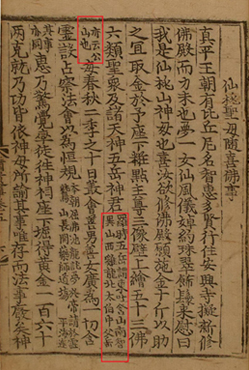 仙桃聖母隨喜佛事
真平王朝有比丘尼名智惠多賢行住安興寺擬新修
佛殿而力未也夢一女仙風儀婥約珠翠飾鬟來慰曰
我是仙桃山神母也喜汝欲修佛殿願施金十斤以助
之宜取金於予座下粧點主尊三像壁上繪五十三佛
六類聖衆及諸天神五岳神君
羅時五岳謂東吐含山南智
異山西雞龍北太伯中父岳
亦云公
山也
每春秋二季之十日叢會善男善女廣為一切含
靈設占察法會以為恒規
本朝屈弗池龍託夢於帝請於靈鷲
山長開藥師道場平海途
其事
亦同
惠乃驚覺率徒往神祠座下堀得黃金一百六十
兩克就乃功皆依神母所諭其事唯存而法事廢矣神